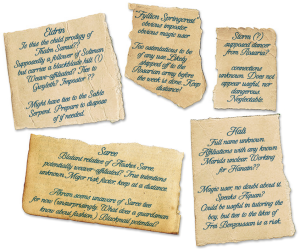 Eldrin
Is this the child prodigy of
Thalin Samail??
Supposedly a follower of Solomon
but carries a bloodblade hilt (!)
Weaver-affiliated? Ties to
Greyteth? Impostor ??
Might have ties to the Sable
Serpent. Prepare to dispose
of if needed.
Fyllion Springcrest
obvious imposter
obvious magic user
Too ostentatious to be
of any use. Likely
shipped off to the
army before
the week is done. Keep
distance!
Storm (?)
supposed dancer
from Rosaria?
connections
unknown. Does not
appear useful, nor
dangerous.
Negligible.
Saree
Blatant relative of Saree,
potentially weaver-affiliated? True intentions
unknown. Major risk factor; keep at a distance.
unaware of Saree ties
for now (unsurprisingly. What does a guardsman
know about fashion.) Blackmail potential?
Hali
Full name unknown.
Affiliations with any known
unclear. Working
for Hanan??
Magic user, no doubt about it.
Speaks
Could be useful to tutoring the
boy, but ties to the likes of
is a risk.